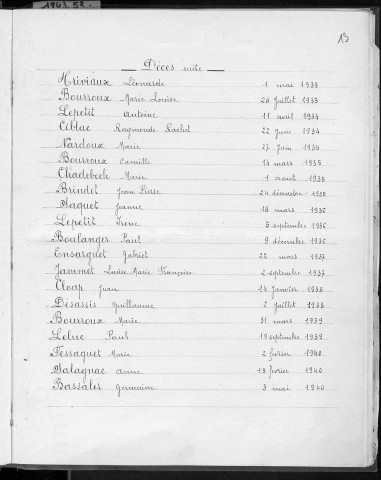 1943.52
13
Décès suite
Hriviaux Léonarde 1 mai 1933
Bourroux Marie Louise 26 Juillet 1933
Lepetit Antoine 11 avril 1934
Ciblac Raymonde Rachel 22 Juin 1934
Nardoux Marie 27 Juin 1934
Bourroux Camille 14 mars 1935
Chadebech Marie 1 août 1935
Brindet Jean Pierre 24 décembre 1935
Jeanne 18 mars 1936
Lepetit Irène 5 septembre 1936
Boulanger Paul 9 décembre 1936
Ensarguet Gabriel 22 mars 1937
Jammet Luise Marie Françoise 2 septembre 1937
Cloup Jean 14 Janvier 1938
Désassis Guillaume 2 Juillet 1938
Bourroux Marie 31 mars 1939
Paul 19 septembre 1939
Fessaguet Marie 2 fevrier 1940
Salagnac Anne 13 fevrier 1940
Bassaler Germaine 3 mai 1940